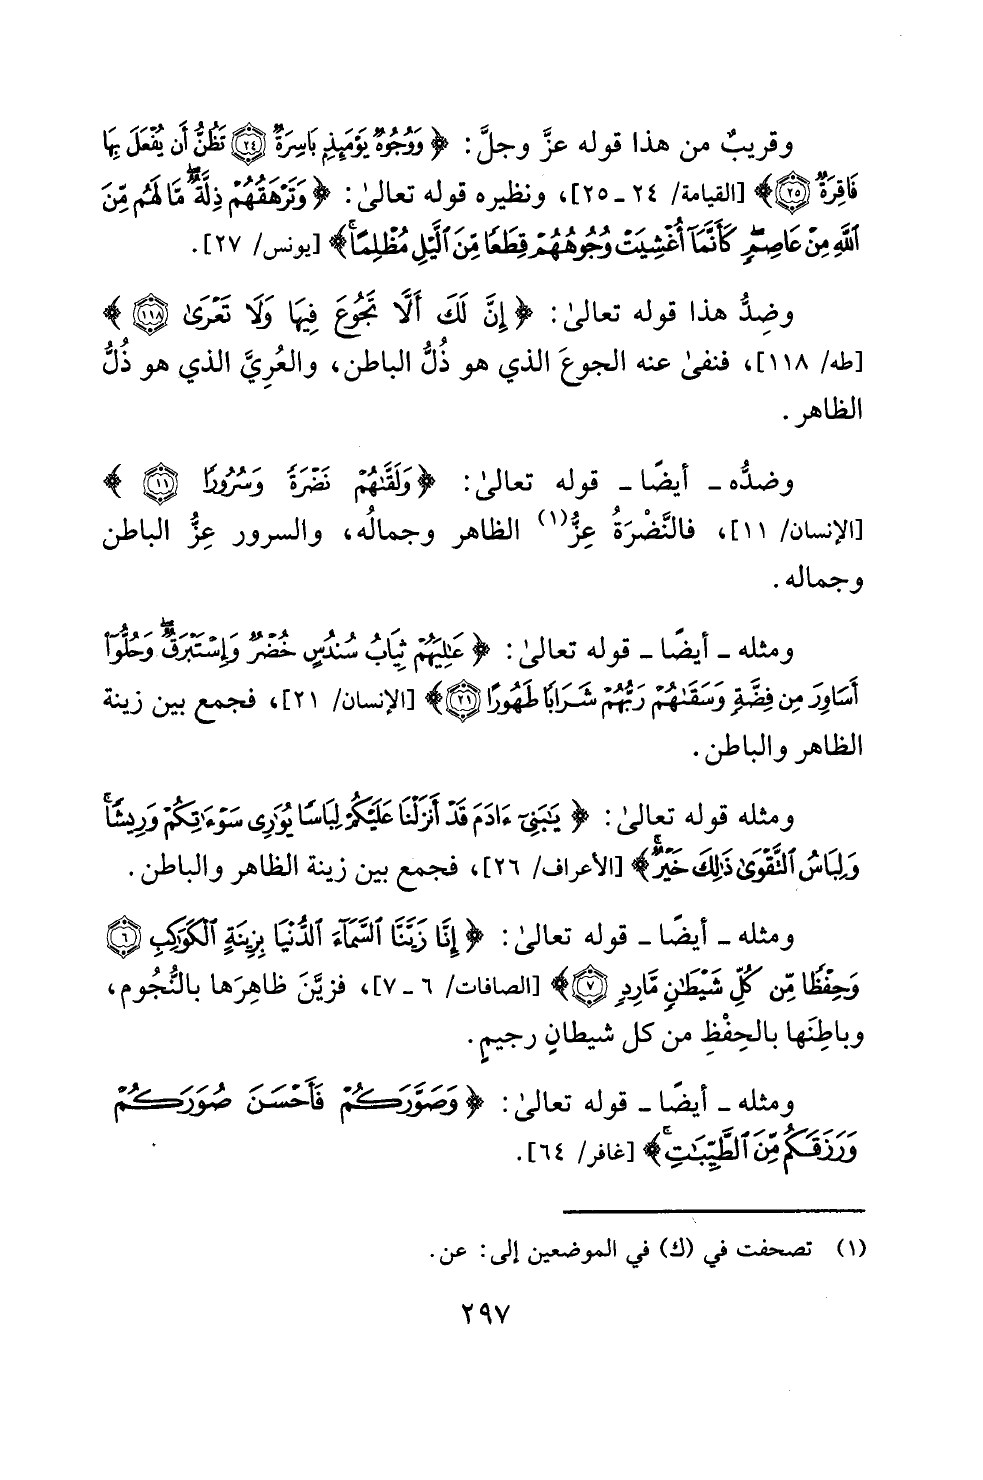 وقريبٌ من هذا قوله عزَّ وجلَّ: ﴿وَوُجُوهٌ يَوْمَئِذٍ بَاسِرَةٌ ۝٢٤ تَظُنُّ أَن يُفْعَلَ بِهَا
فَاقِرَةٌ ۝٢٥﴾ [القيامة/ ٢٤ ـ ٢٥]، ونظيره قوله تعالىٰ: ﴿وَتَرْهَقُهُمْ ذِلَّةٌ ۖ مَّا لَهُم مِّنَ
ٱللَّهِ مِنْ عَاصِمٍ ۖ كَأَنَّمَآ أُغْشِيَتْ وُجُوهُهُمْ قِطَعًا مِّنَ ٱلَّيْلِ مُظْلِمًا ۚ﴾ [يونس/ ٢٧].
وضِدُّ هذا قوله تعالىٰ: ﴿إِنَّ لَكَ أَلَّا تَجُوعَ فِيهَا وَلَا تَعْرَىٰ ۝١١٨﴾
[طه/ ١١٨]، فنفىٰ عنه الجوعَ الذي هو ذُلُّ الباطن، والعُرِيَّ الذي هو ذُلُّ
الظاهر.
وضدُّه ـ أيضًا ـ قوله تعالىٰ: ﴿وَلَقَّىٰهُمْ نَضْرَةً وَسُرُورًا ۝١١﴾
[الإنسان/ ١١]، فالنَّضْرَةُ عِزُّ(١) الظاهر وجمالُه، والسرور عِزُّ الباطن
وجماله.
ومثله ـ أيضًا ـ قوله تعالىٰ: ﴿عَٰلِيَهُمْ ثِيَابُ سُندُسٍ خُضْرٌ وَإِسْتَبْرَقٌ ۖ وَحُلُّوٓا۟
أَسَاوِرَ مِن فِضَّةٍ وَسَقَىٰهُمْ رَبُّهُمْ شَرَابًا طَهُورًا ۝٢١﴾ [الإنسان/ ٢١]، فجمع بين زينة
الظاهر والباطن.
ومثله قوله تعالىٰ: ﴿يَٰبَنِىٓ ءَادَمَ قَدْ أَنزَلْنَا عَلَيْكُمْ لِبَاسًا يُوَٰرِى سَوْءَٰتِكُمْ وَرِيشًا ۖ
وَلِبَاسُ ٱلتَّقْوَىٰ ذَٰلِكَ خَيْرٌ ۚ﴾ [الأعراف/ ٢٦]، فجمع بين زينة الظاهر والباطن.
ومثله ـ أيضًا ـ قوله تعالىٰ: ﴿إِنَّا زَيَّنَّا ٱلسَّمَآءَ ٱلدُّنْيَا بِزِينَةٍ ٱلْكَوَاكِبِ ۝٦
وَحِفْظًا مِّن كُلِّ شَيْطَٰنٍ مَّارِدٍ ۝٧﴾ [الصافات/ ٦ ـ ٧]، فزيَّنَ ظاهِرَها بالنُّجُوم،
وباطِنَها بالحِفْظِ من كل شيطانٍ رجيمٍ.
ومثله ـ أيضًا ـ قوله تعالىٰ: ﴿وَصَوَّرَكُمْ فَأَحْسَنَ صُوَرَكُمْ
وَرَزَقَكُم مِّنَ ٱلطَّيِّبَٰتِ ۚ﴾ [غافر/ ٦٤].
(١) تصحفت في (ك) في الموضعين إلى: عن.
٢٩٧